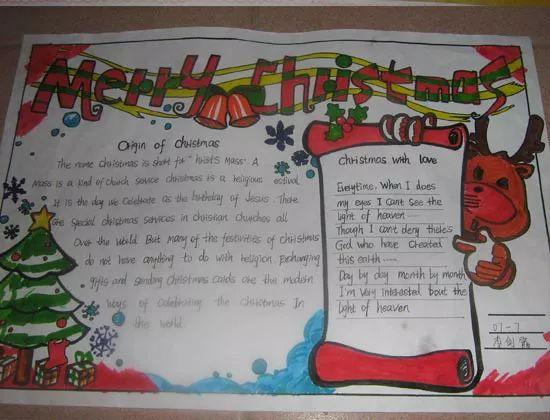 Merry Christmas
Origin of Christmas
The name Christmas is short for "hrist's Mass". A
Mass is a kind of church service christmas is a religious estival
It is the day we celebrate as the birthday of Jesus. There
are special christmas services in christian churches all
Over the World. But many of the festivities of christmas
do not have anything to do with religion.
gifts and sending Christmas cards are the modern
ways of celebrating the Christmas In
the world.
christmas with love
Everytime, When I does
my eyes I cant see the
light of heaven
Though I can't deny there's
God who have cheated
this earth ......
Day by day month by month
I'm very interested bout the
light of heaven
07-7